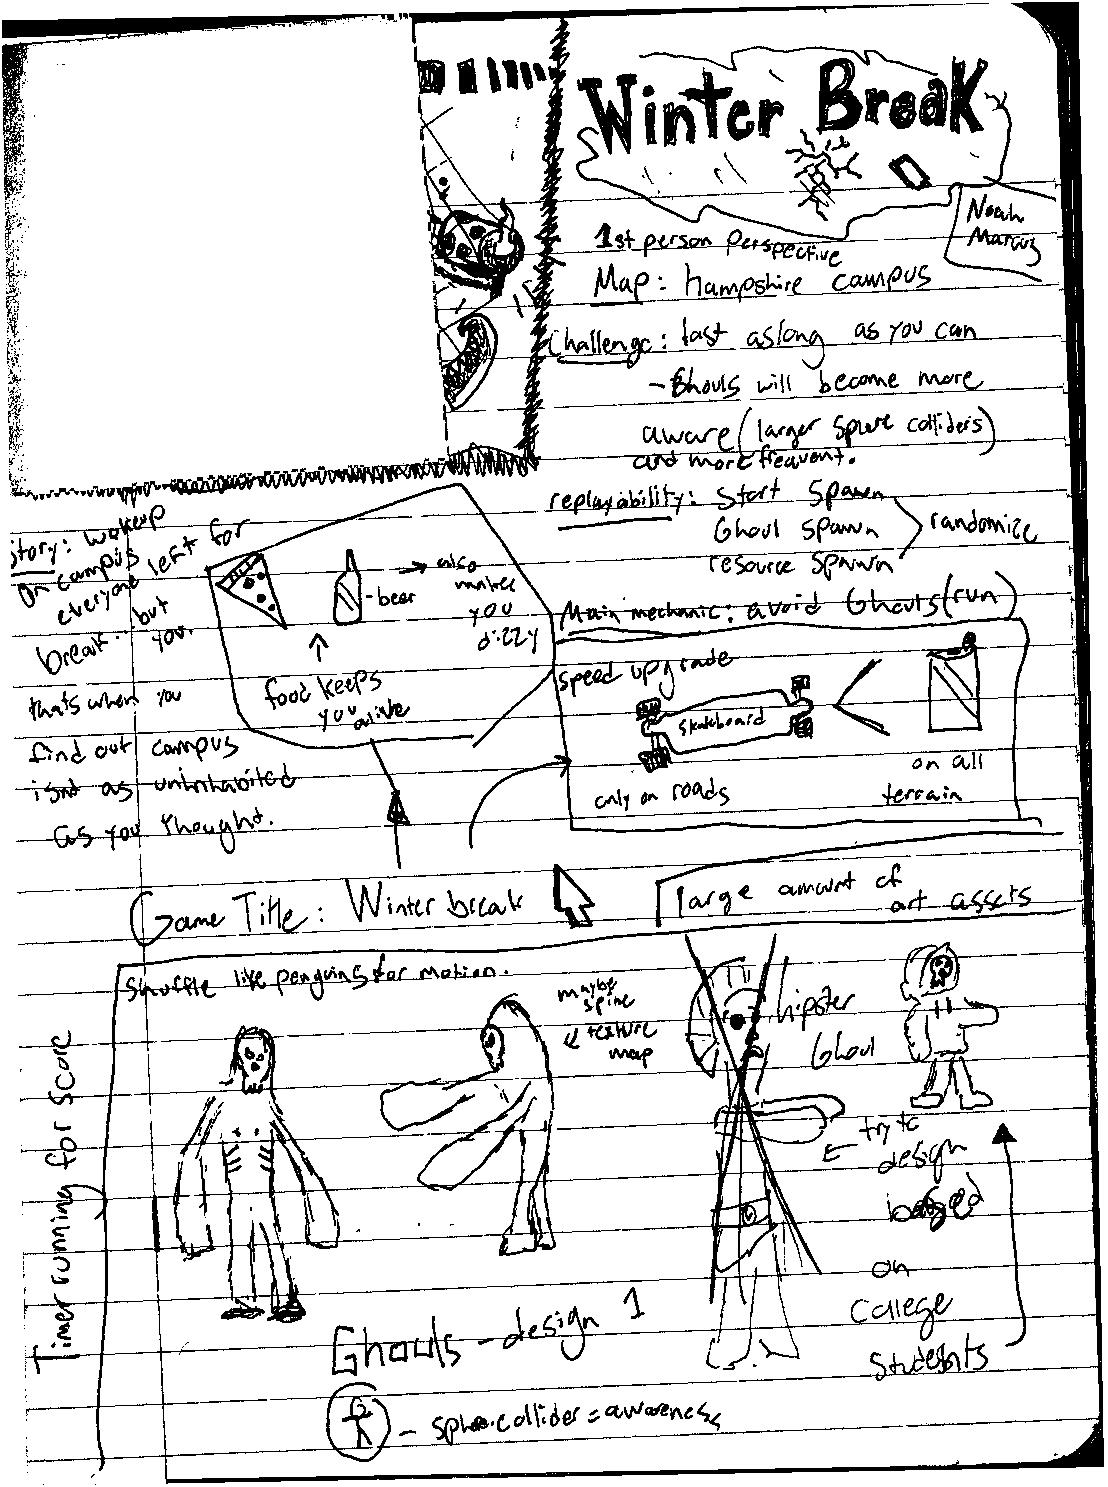 Winter Break
Noah
Marcus
1st person perspective
Map: hampshire campus
Challenge: last aslong as you can
- Ghouls will become more
aware (larger sphere colliders)
and more frequent.
replayability: Start Spawn
Ghoul spawn
resource spawn
randomize
Main mechanic: avoid Ghouls (run)
Story: wakeup
on campus
everyone left for
break... but
you.
thats when you
find out campus
isnt as uninhabited
as you thought.
- beer
also
makes
you
dizzy
food keeps
you alive
speed upgrade
skateboard
only on roads
on all
terrain
Game Title: Winter break
large amount of
art assets
Timer running for score
Shuffle like penguins for motion.
maybe
spine
texture
map
hipster
Ghoul
try to
design
based
on
College
Students
Ghouls - design 1
- sphere collider = awareness